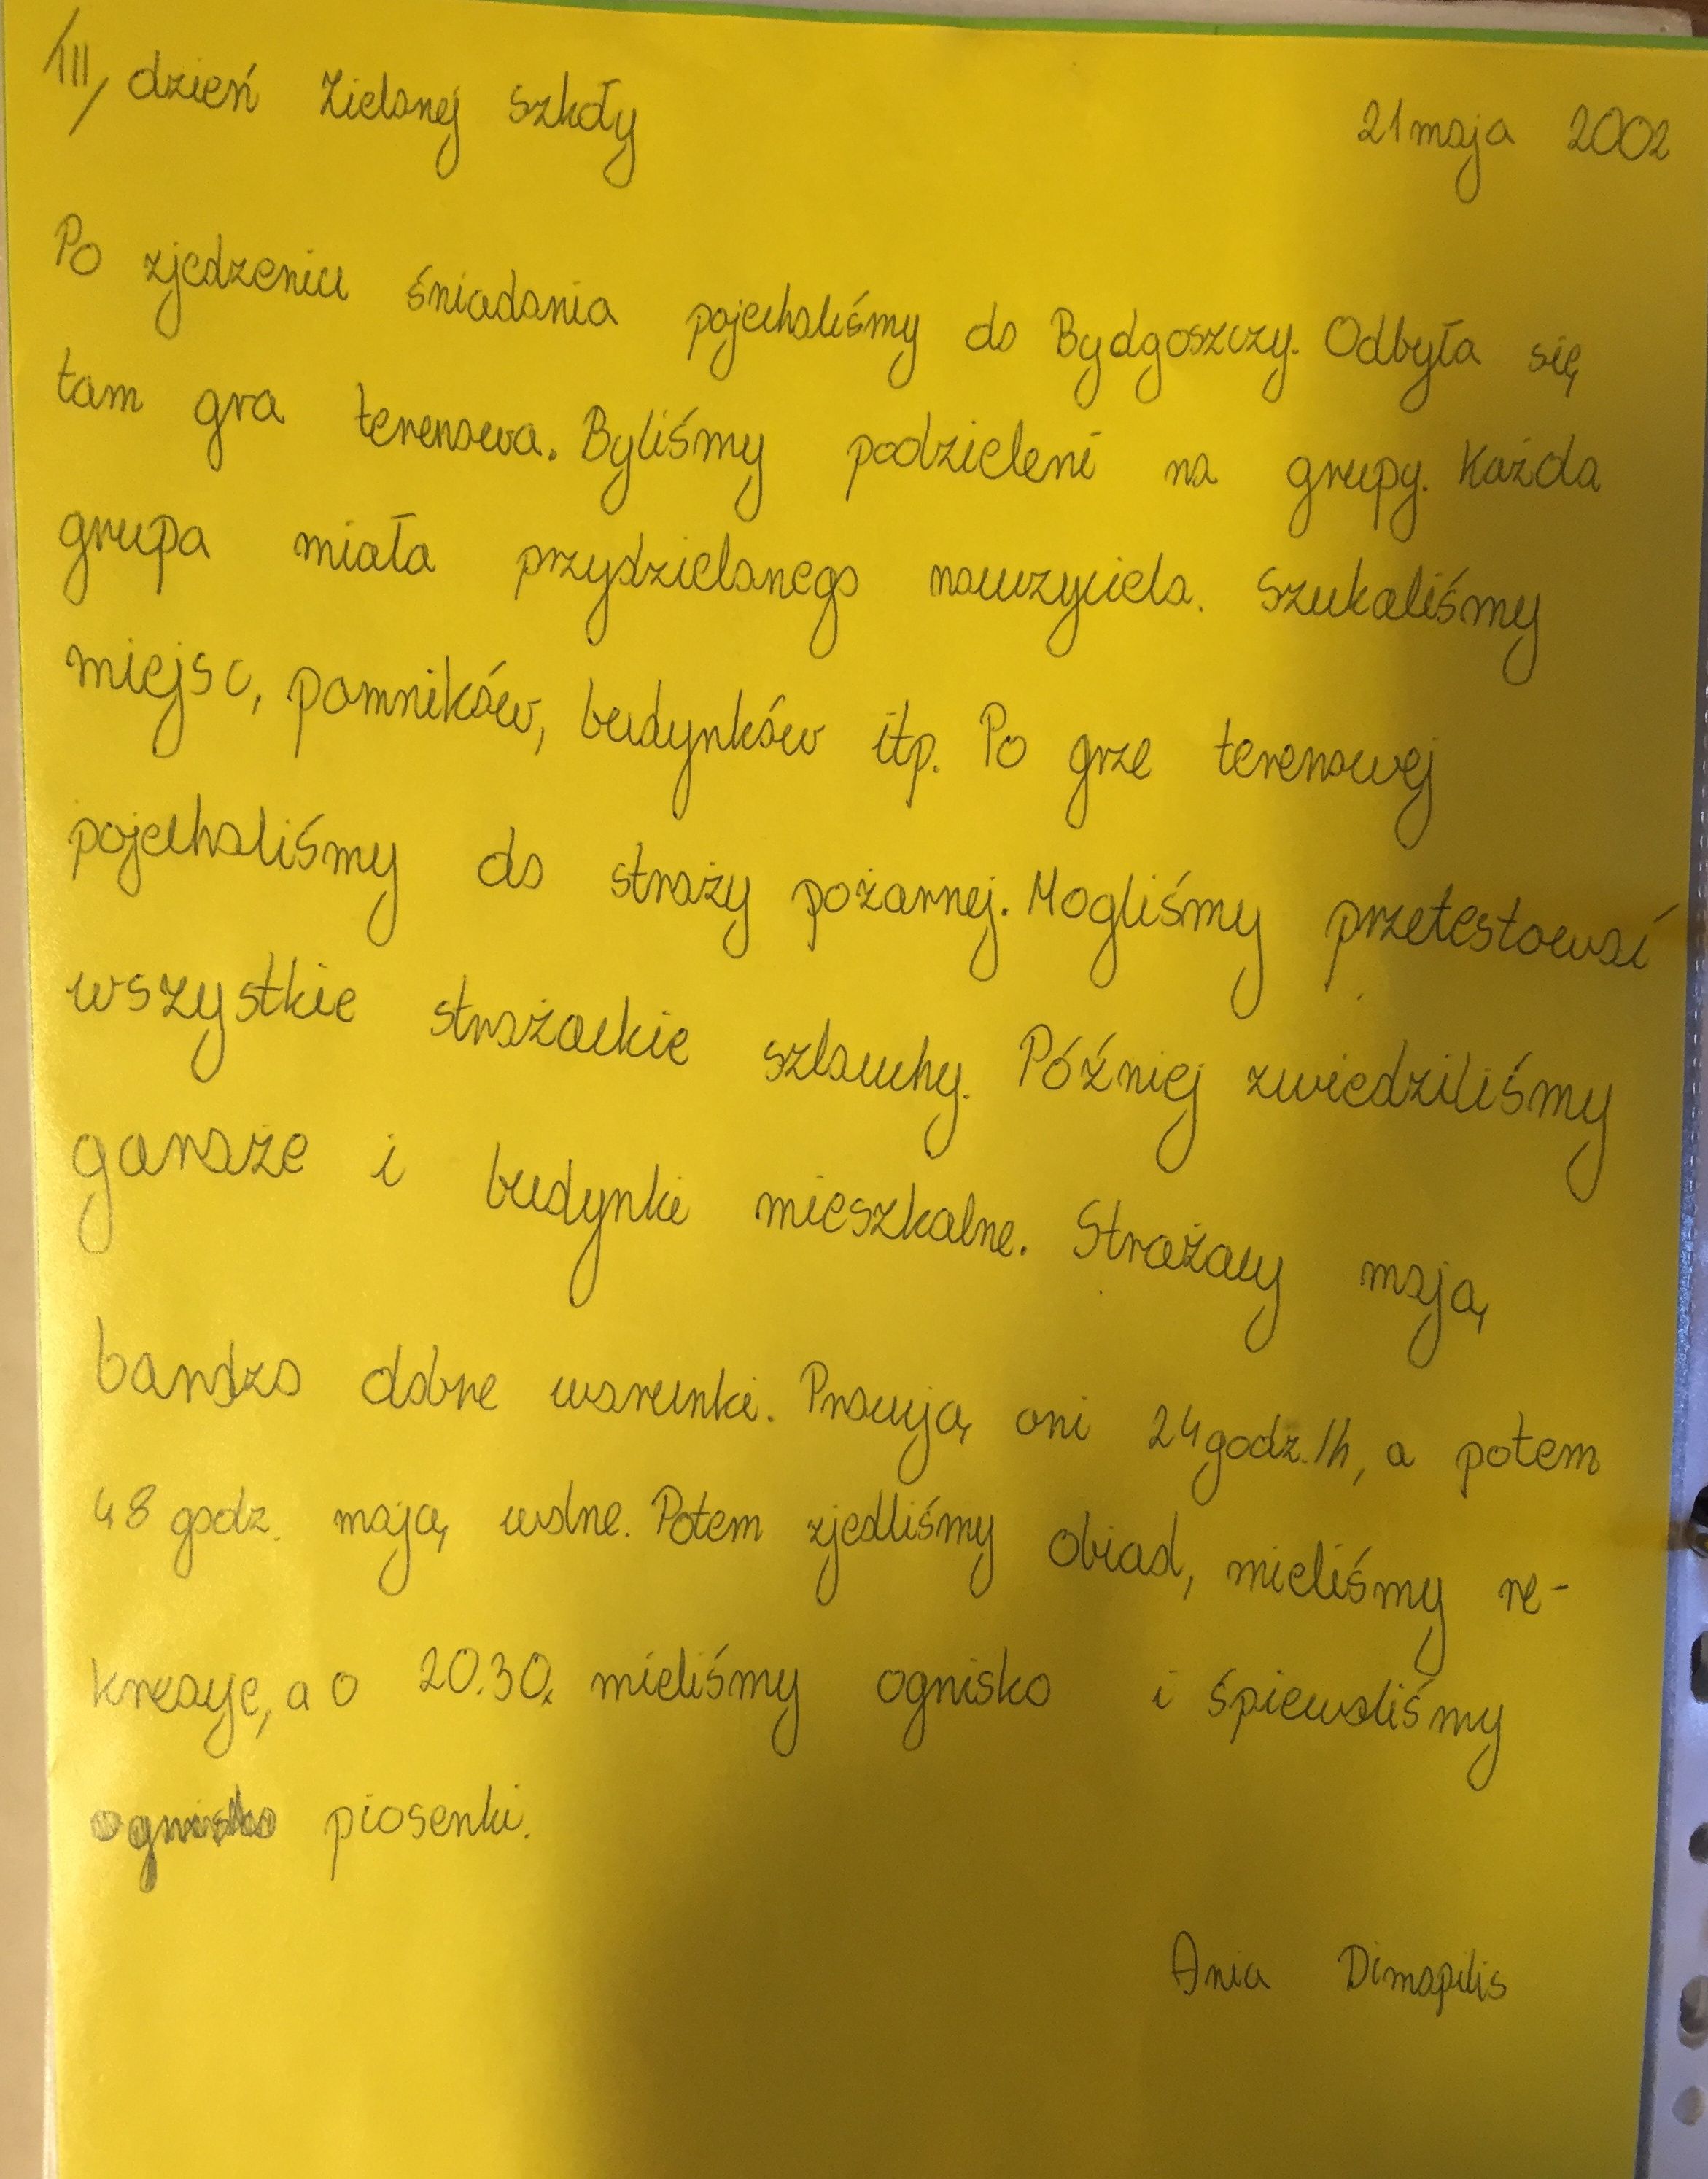 /III/ dzień Zielonej Szkoły 21 maja 2002
Po zjedzeniu śniadania pojechaliśmy do Bydgoszczy. Odbyła się
tam gra terenowa. Byliśmy podzieleni na grupy. Każda
grupa miała przydzielonego nauczyciela. Szukaliśmy
miejsc, pomników, budynków itp. Po grze terenowej
pojechaliśmy do straży pożarnej. Mogliśmy przetestować
wszystkie strażackie szlauchy. Później zwiedziliśmy
garaże i budynki mieszkalne. Strażacy mają
bardzo dobre warunki. Pracują oni 24 godz./h, a potem
48 godz. mają wolne. Potem zjedliśmy obiad, mieliśmy re-
kreację, a o 20.30. mieliśmy ognisko i śpiewaliśmy
ognisko piosenki.
Ania Dimapilis